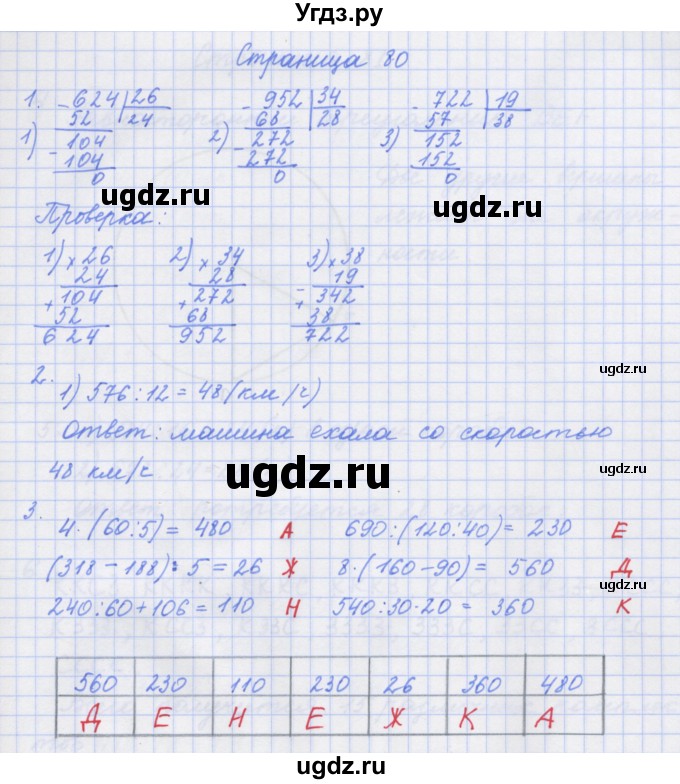 Угдз.ру
Страница 80
1. -624|26 -952|34 -722|19
1) 52 24 2) 68 28 3) 57 38
104 -272 152
-104 272 152
0 0 0
ugdz.ru ugdz.ru ugdz.ru
Проверка:
1) ×26 2) ×34 3) ×38
24 28 19
+104 +272 -342
52 68 38
624 952 722
ugdz.ru
2. 1) 576:12=48(км/ч)
Ответ: машина ехала со скоростью
48 км/ч
ugdz.ru ugdz.ru
3.
4·(60:5)= 480 А 690:(120:40)= 230 Е
(318-188):5=26 Ж 8·(160-90)= 560 Д
ugdz.ru
240:60+106=110 Н 540:30·20= 360 К
560 230 110 230 26 360 480
Д Е Н Е Ж К А
ugdz.ru ugdz.ru